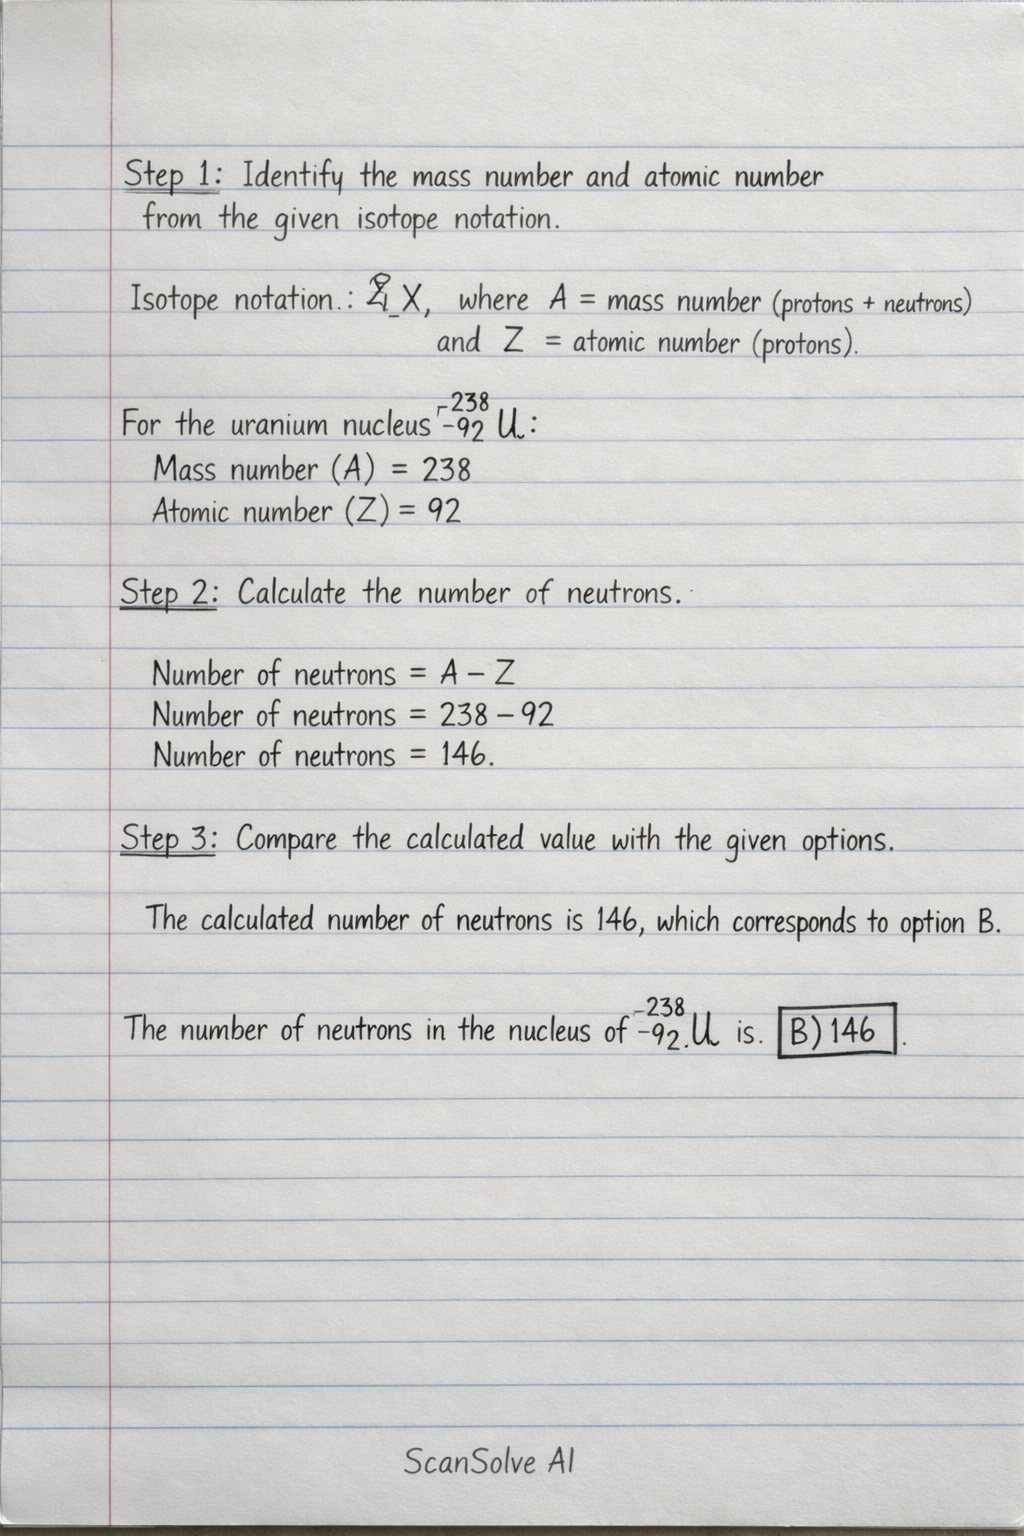 Step 1: Identify the mass number and atomic number
from the given isotope notation.
Isotope notation.: X, where A = mass number (protons + neutrons)
and Z = atomic number (protons).
For the uranium nucleus ⁻²³⁸₋₉₂ U:
Mass number (A) = 238
Atomic number (Z) = 92
Step 2: Calculate the number of neutrons.
Number of neutrons = A – Z
Number of neutrons = 238 – 92
Number of neutrons = 146.
Step 3: Compare the calculated value with the given options.
The calculated number of neutrons is 146, which corresponds to option B.
The number of neutrons in the nucleus of ⁻²³⁸₋₉₂.U is. B) 146.
ScanSolve AI